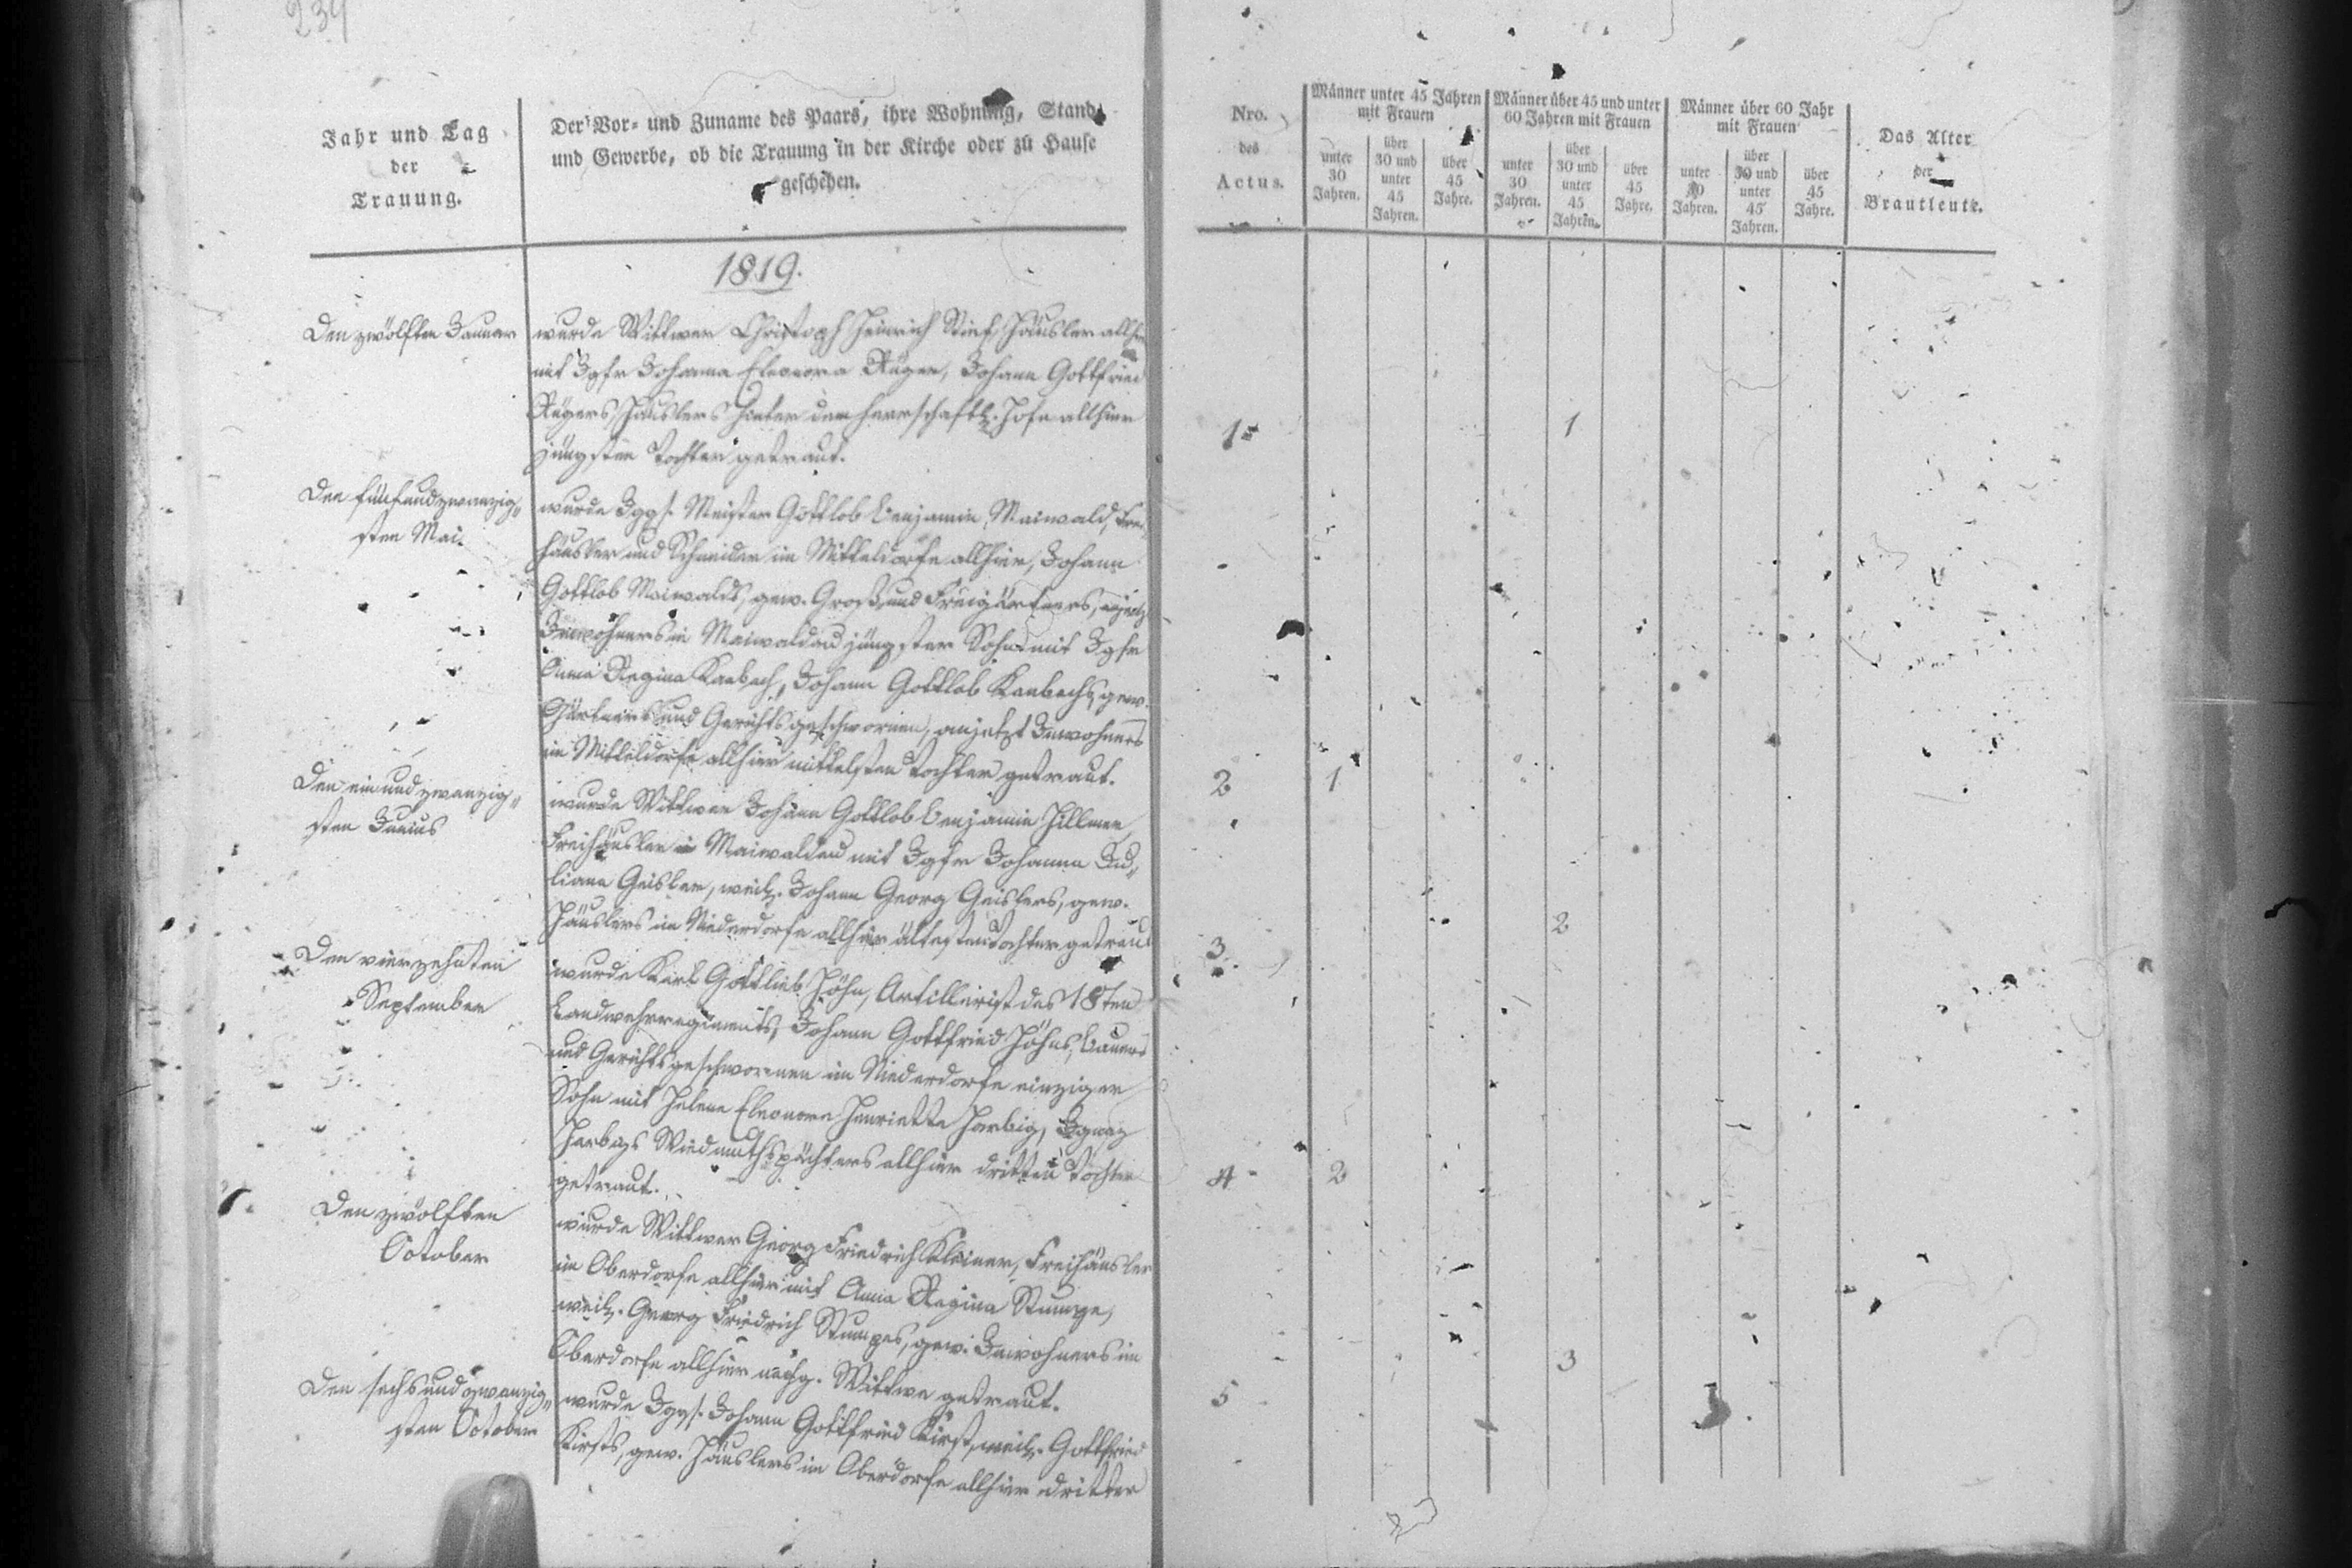 239
Jahr und Tag
der
Trauung.
Der Vor- und Zuname des Paars, ihre Wohnung, Stand
und Gewerbe, ob die Trauung in der Kirche oder zu Hause
geschehen.
1819.
Den zwölften Januar
wurde Wittwer Christoph Heinrich Stief, Häusler allhier
mit Jgfr Johanna Eleonora Rüger, Johann Gottfried
Rügers Häuslers hinter dem herrschaftl. Hofe allhier
jüngsten Tochter getraut.
Den fünfundzwanzig„
sten Mai.
wurde Jggs. Meister Gottlob Benjamin Maiwald, Frei„
häusler und Schneider im Mitteldorfe allhier, Johann
Gottlob Maiwalds, gew. Groß und Freigärtners, anjetz
Inwohners in Maiwaldau jüngster Sohn mit Jgfr
Anna Regina Kambach, Johann Gottlob Kambachs, gew.
Gärtners und Gerichtsgeschwornen, anjetzt Inwohners
im Mitteldorfe allhier mittelsten Tochter getraut.
Den einundzwanzig„
sten Junius
wurde Wittwer Johann Gottlob Benjamin Hillmer,
Freihäusler in Maiwaldau mit Jgfr Johanna Ju„
liana Geisler, weil. Johann Georg Geislers, gew.
Häuslers im Niederdorfe allhier ältesten Tochter getraut
Den vierzehnten
September
wurde Karl Gottlieb Höhn, Artillerist des 18ten
Landwehrregiments, Johann Gottfried Höhns, Bauers
und Gerichtsgeschwornen im Niederdorfe einziger
Sohn mit Helene Eleonore Henriette Harbig, Ignaz
Harbigs Wiedmuthspächters allhier dritten Tochter
getraut.
Den zwölften
October
wurde Wittwer Georg Friedrich Kleiner, Freihäusler
im Oberdorfe allhier mit Anna Regina Stumpe,
weil. Georg Friedrich Stumpes, gew. Inwohners im
Oberdorfe allhier nachg. Wittwe getraut.
Den sechsundzwanzig„
sten October
wurde Jggs. Johann Gottfried Kirst, weil. Gottfried
Kirsts, gew. Häuslers im Oberdorfe allhier dritter
Nro.
des
Actus.
Männer unter 45 Jahren
mit Frauen
unter
30
Jahren.
über
30 und
unter
45
Jahren.
über
45
Jahre.
Männer über 45 und unter
60 Jahren mit Frauen
unter
30
Jahren.
über
30 und
unter
45
Jahren.
über
45
Jahre.
Männer über 60 Jahr
mit Frauen
unter
30
Jahren.
über
30 und
unter
45
Jahren.
über
45
Jahre.
Das Alter
der
Brautleute.
1 1
2 1
3 2
4 2
5 3